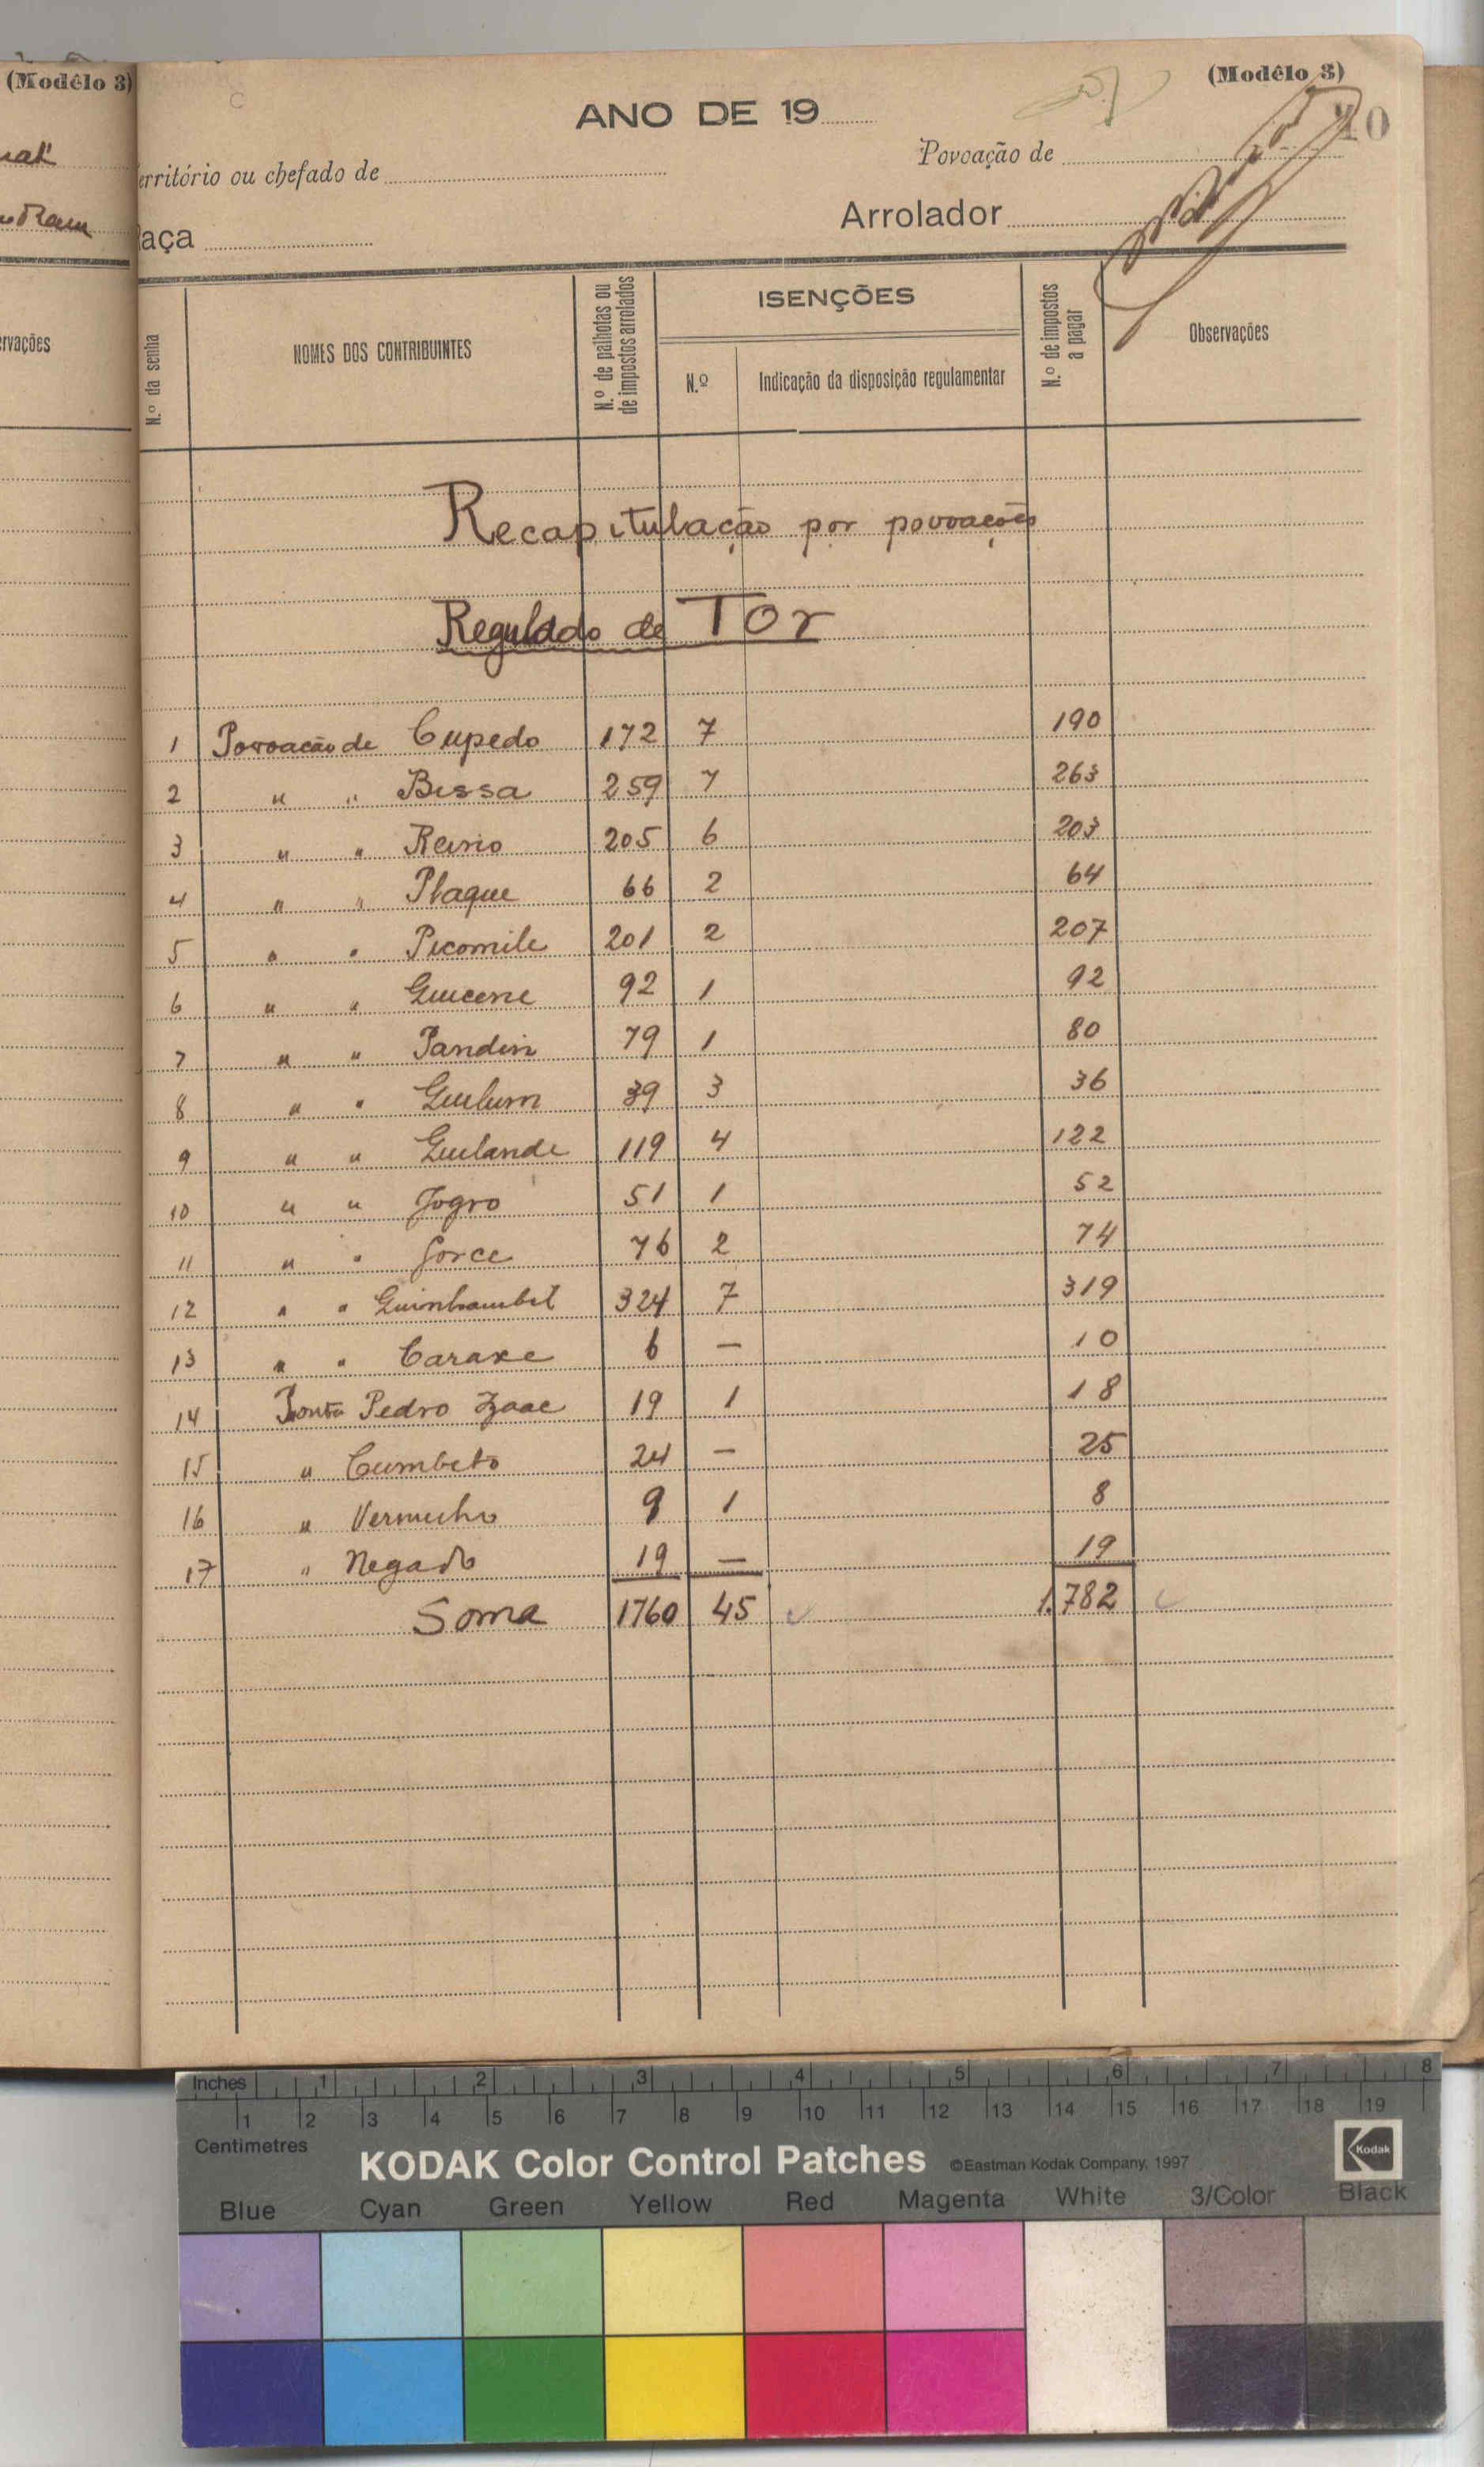 (Modêlo 3)
(Modêlo 3)
ANO DE 19
10
erritório ou chefado de
Povoação de
aça
Arrolador
rvações
N.º da senha
NOMES DOS CONTRIBUINTES
N.º de palhotas ou de impostos arrolados
ISENÇÕES
N.º
Indicação da disposição regulamentar
N.º de impostos a pagar
Observações
Recapitulação por povoações
Regulado de Tor
1 Povoacão de Cupedo 172 7 190
2 " " Bissa 259 7 263
3 " " Reino 205 6 203
4 " " Plaque 66 2 64
5 " " Picomile 201 2 207
6 " " Guicene 92 1 92
7 " " Pandin 79 1 80
8 " " Guilum 39 3 36
9 " " Guilande 119 4 122
10 " " Jogro 51 1 52
11 " " Jorce 76 2 74
12 " " 324 7 319
13 " " Caraxe 6 — 10
14 Ponta Pedro Izaac 19 1 18
15 " Cumbeto 24 — 25
16 " Vermelho 9 1 8
17 " Negado 19 — 19
Soma 1760 45 1.782
Inches 1 2 3 4 5 6 7 8
1 2 3 4 5 6 7 8 9 10 11 12 13 14 15 16 17 18 19
Centimetres
KODAK Color Control Patches ©Eastman Kodak Company, 1997 Kodak
Blue Cyan Green Yellow Red Magenta White 3/Color Black